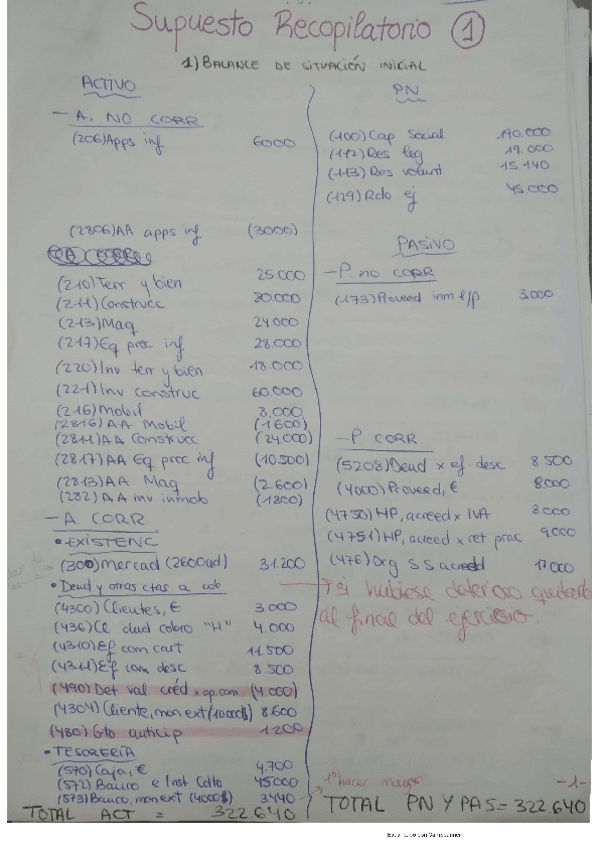 Supuesto Recopilatorio ①
1) BALANCE DE SITUACIÓN INICIAL
ACTIVO
- A. NO CORR
(206) Apps inf 6000
(2806) AA apps inf (3000)
(210) Terr y bien 25.000
(211) Construcc 80.000
(213) Maq 24.000
(217) Eq proc inf 28.000
(220) Inv terr y bien 18.000
(221) Inv construc 60.000
(216) Mobil 8.000
(2816) AA Mobil (1600)
(2811) AA Construcc (24.000)
(2817) AA Eq proc inf (10.500)
(2813) AA Maq (2.600)
(282) AA inv inmob (1800)
- A. CORR
• EXISTENC
(300) mercad (2600ud) 31.200
• Deud y otras ctas a cob
(4300) Clientes, € 3.000
(436) Cl dud cobro "H" 4.000
(4310) Ef com cart 11.500
(4311) Ef com desc 8.500
(490) Det val créd x op. com (4.000)
(4304) Cliente, mon ext (10000$) 8.600
(480) Gto anticip 1.200
• TESORERÍA
(570) Caja, € 4.700
(572) Banco e Inst Cdto 45000
(573) Banco, mon ext (4000$) 3440
TOTAL ACT = 322640
PN
(100) Cap Social 190.000
(112) Res leg 19.000
(113) Res volunt 15.140
(129) Rdo ej 45.000
PASIVO
- P. no CORR
(173) Proveed inm l/p 3.000
- P CORR
(5208) Deud x ef. desc 8.500
(4000) Proveed, € 8.000
(4750) HP, acreed x IVA 8.000
(4751) HP, acreed x ret prac 9000
(476) Org S.S. acreed 17.000
→ si hubiese deterioro quitarlo
al final del ejercicio.
1º hacer mayor
-1-
TOTAL PN Y PAS = 322640